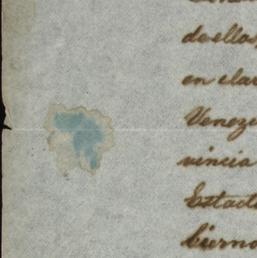 de ellas,
en el a
Venezu
vincia
Estad
bierno